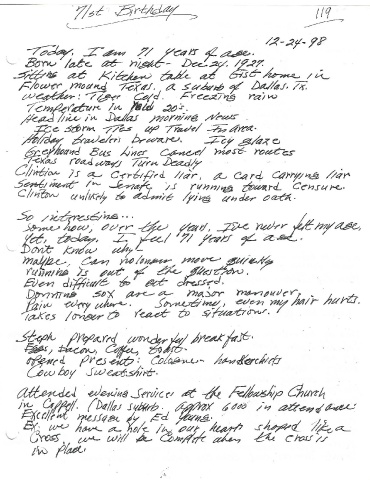 71st Birthday
119
12-24-98
Today, I am 71 years of age.
Born late at night - Dec 24, 1927.
Sitting at Kitchen table at Gist home in
Flower mound Texas, a suburb of Dallas, Tx.
Weather: Tiger Cold. Freezing rain
Temperature in 20s.
Headline in Dallas morning News
Ice storm Ties up Travel in area.
Holiday travelers beware. Icy glaze
Greyhound Bus Lines Cancel most routes
Texas roadways Turn Deadly
Clintion is a Certified liar, a card carrying liar
Sentiment in Senate is running toward Censure.
Clinton unlikely to admit lying under oath.
So interesting...
Somehow, over the years, I've never felt my age,
Yet, today, I feel 71 years of age.
Don't know why!
maybe, Can no longer move quickly
running is out of the question.
Even difficult to get dressed.
Donning sox are a major manouver,
Pain everywhere. Sometimes, even my hair hurts.
Takes longer to react to situations.
Steph prepared wonderful breakfast.
Eggs, bacon, Coffee, toast.
opened presents: Cologne - handkerchiefs
Cowboy sweatshirt.
Attended evening services at the Fellowship Church
in Coppell. (Dallas suburb. approx 6000 in attendance.
Excellent message by Ed Young.
Ex. we have a hole in our hearts shaped like a
Cross, we will be Complete when the cross is
in place.